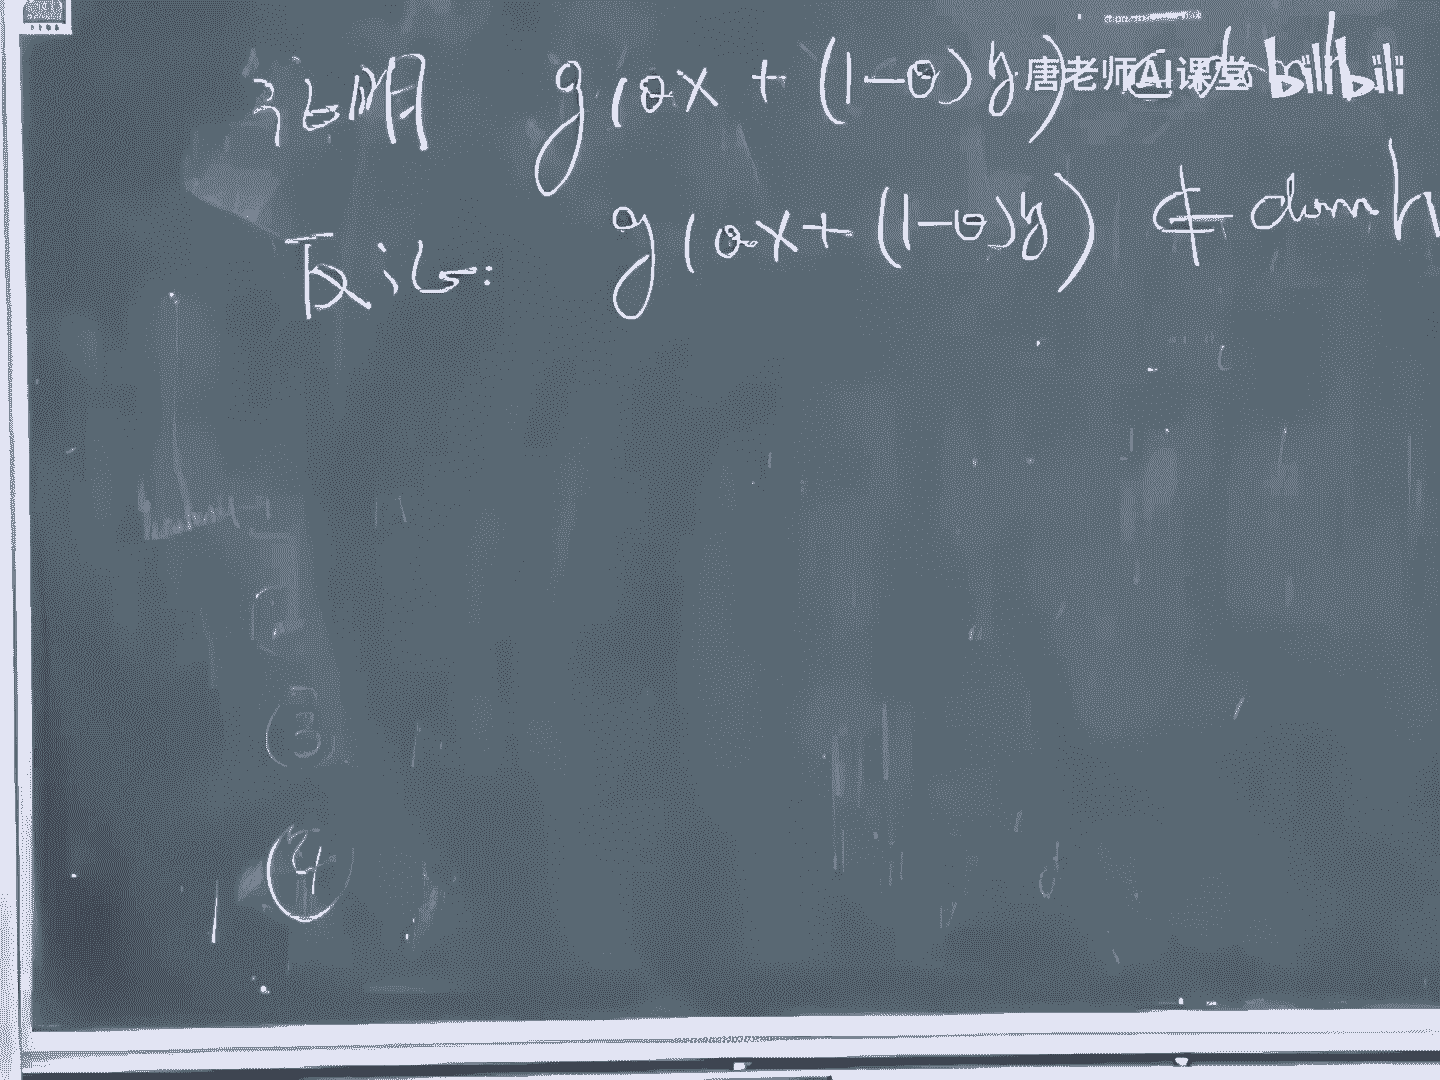 证明 g(θx + (1-θ)y) ∈ dom
唐老师AI课堂 bilibili
反证: g(θx + (1-θ)y) ∉ dom h
(3)
④